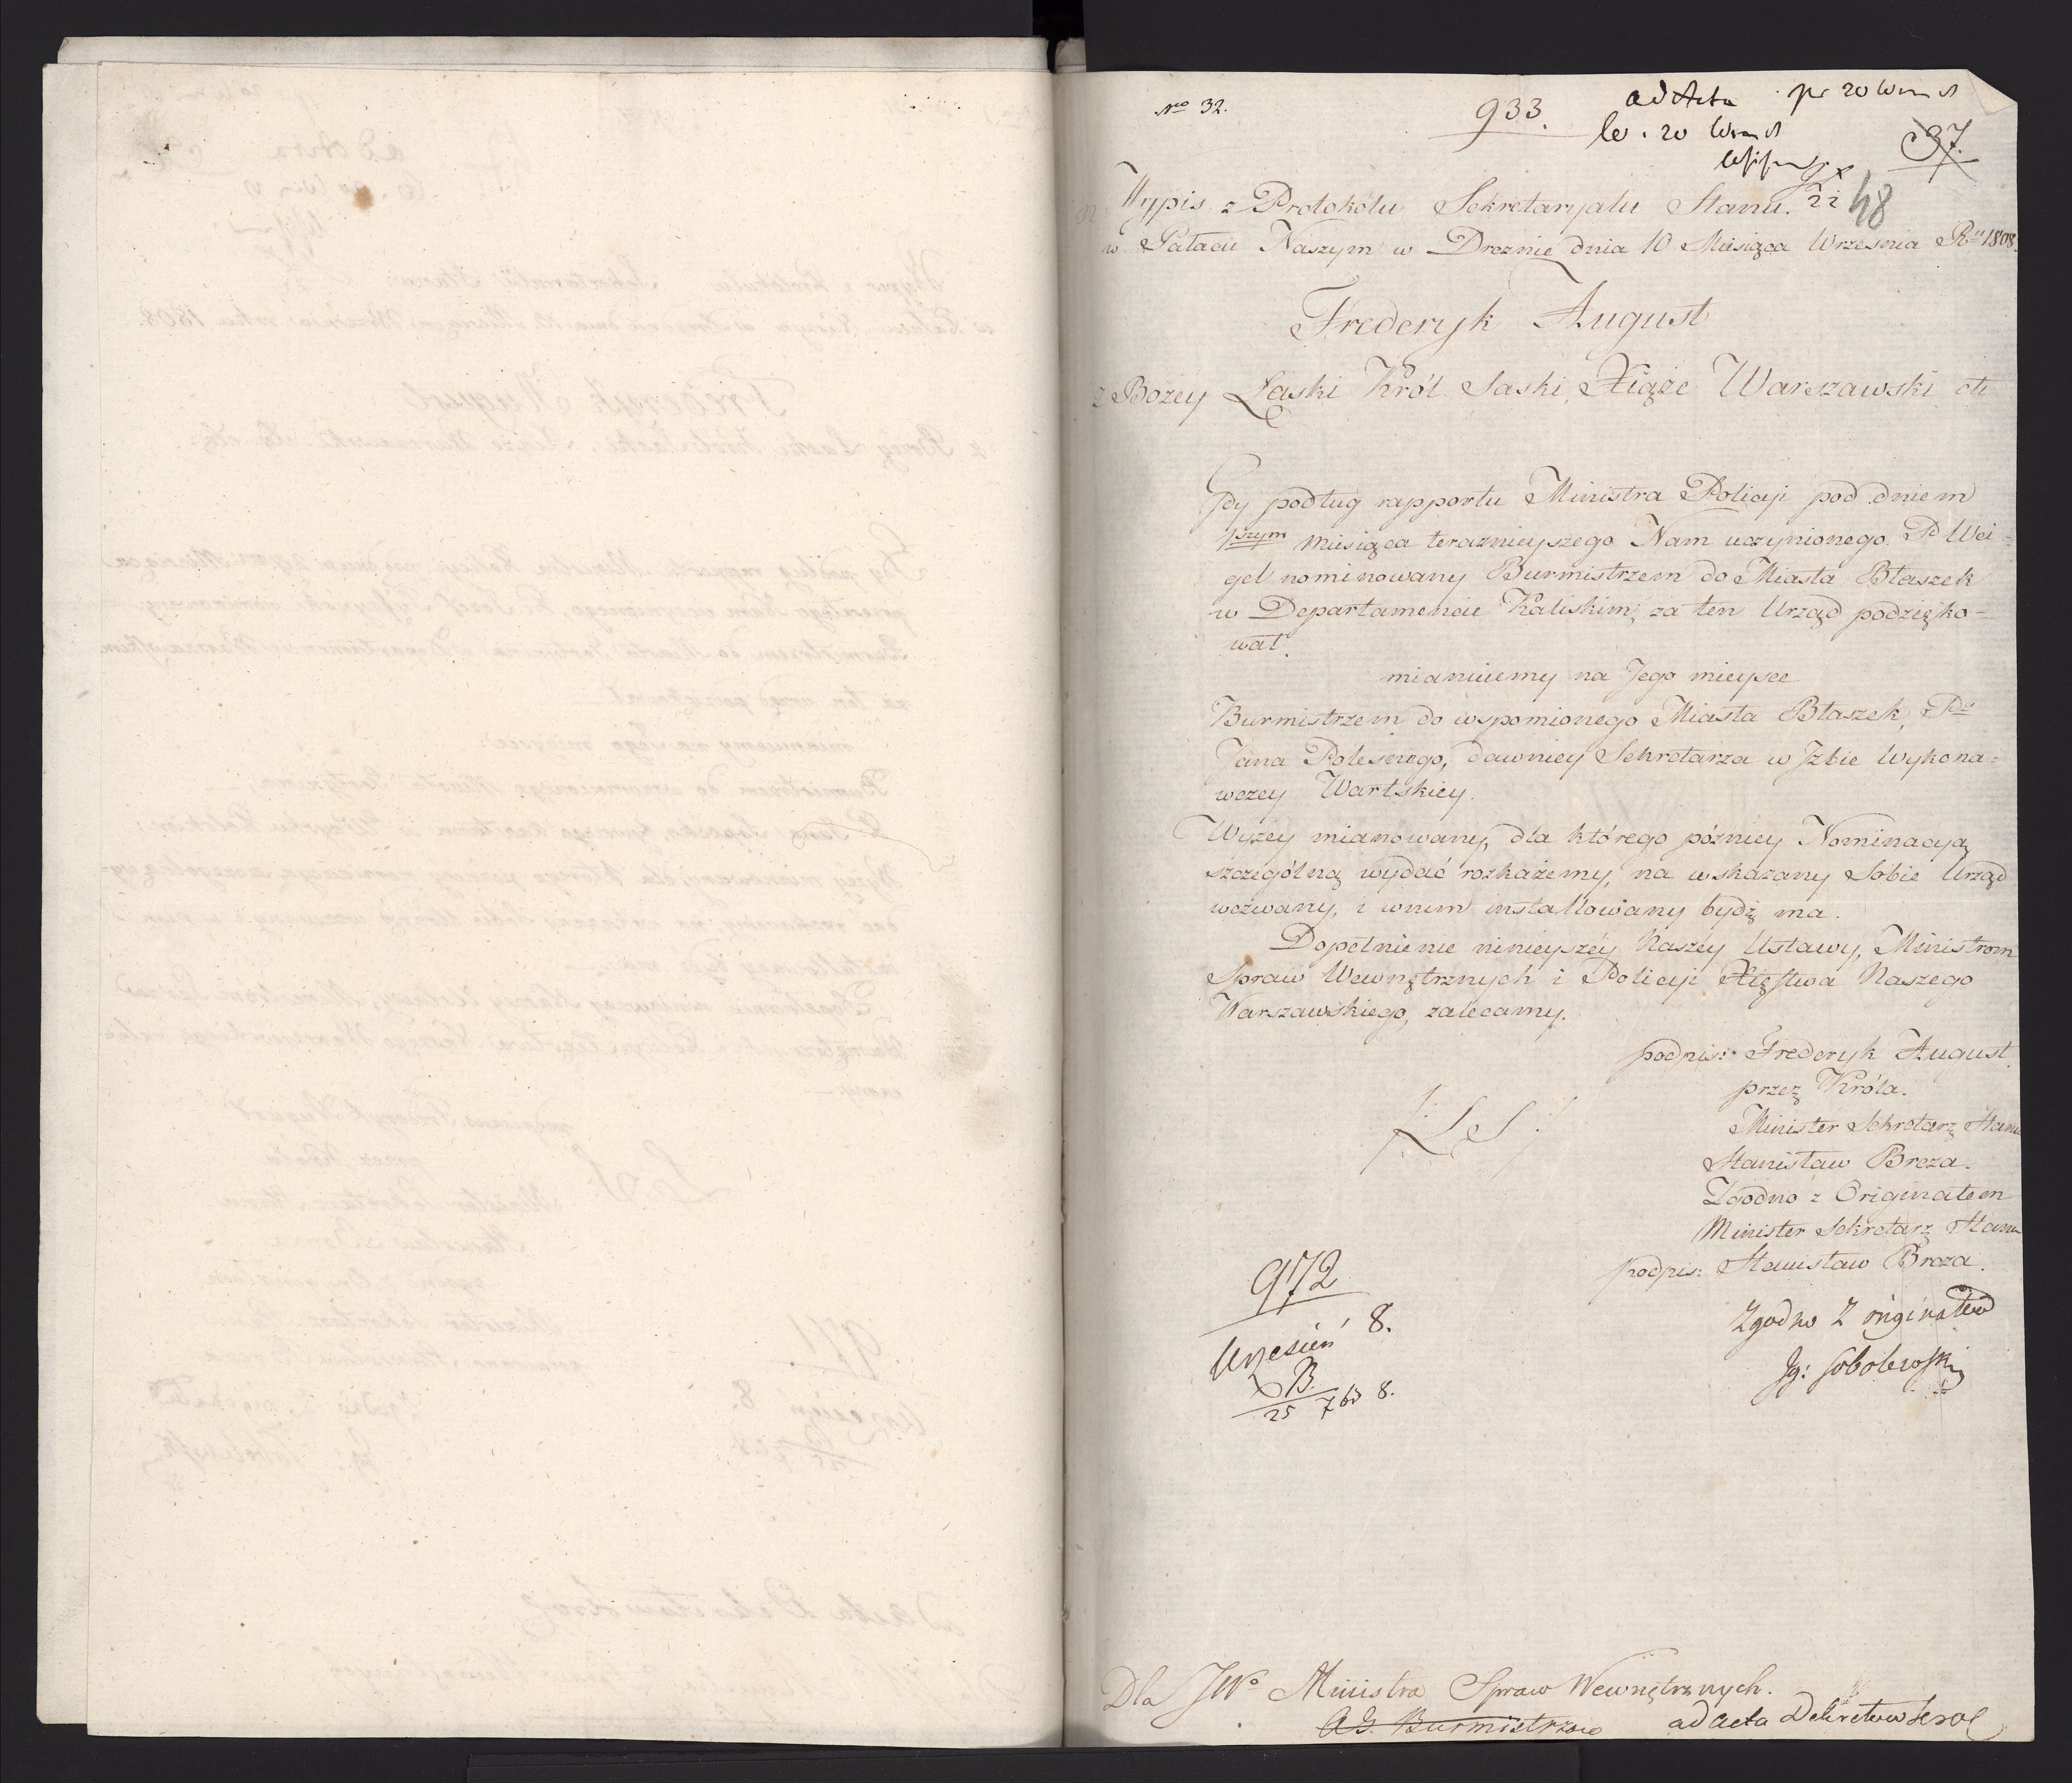 No 32.
933.
ad Acta
20
37.
48
22
Wypis z Protokółu Sekretaryatu Stanu.
w Pałacu Naszym w Dreznie dnia 10 Miesiąca Wrzesnia Ru 1808.
Frederyk August
z Bożey Łaski Król Saski, Xiąże Warszawski etc
Gdy podług rapportu Ministra Policyi pod dniem
1szym miesiąca teraznieyszego Nam uczynionego P Wei=
gel nominowany Burmistrzem do Miasta Błaszek
w Departamencie Kaliskim, za ten Urząd podzięko-
wał.
mianuiemy na Jego mieysce
Burmistrzem do wspomionego Miasta Błaszek, Pa
Jana Poleskiego, dawniey Sekretarza w Izbie Wykona=
wczey Wartskiey.
Wyżey mianowany, dla którego pózniey Nominacyą
szczególną wydać rozkażemy, na wskazany Sobie Urząd
wezwany, i wnim installowany bydź ma.
Dopełnienie ninieyszéy Naszey Ustawy, Ministrom
Spraw Wewnętrznych i Policyi Xięstwa Naszego
Warszawskiego, zalecamy.
podpis: Frederyk August
przez Króla.
/: L S :/
Minister Sekretarz Stanu
Stanisław Breza.
Zgodno z Originałem
Minister Sekretarz Stanu
podpis: Stanisław Breza.
Zgodno z originałem
Ig: Sobolewski
972
Wrzesień 8.
B.
25 7br 8.
Dla JWo Ministra Spraw Wewnętrznych.
Burmistrzow
ad acta Dekretow Krol